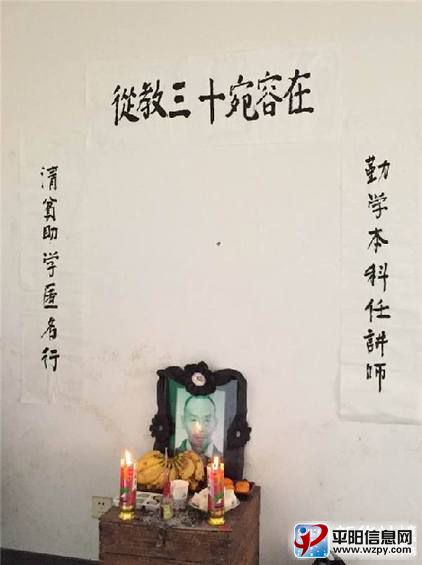 從教三十宛容在
勤学本科任讲师
清贫助学匿名行
平阳信息网
www.wzpy.cc